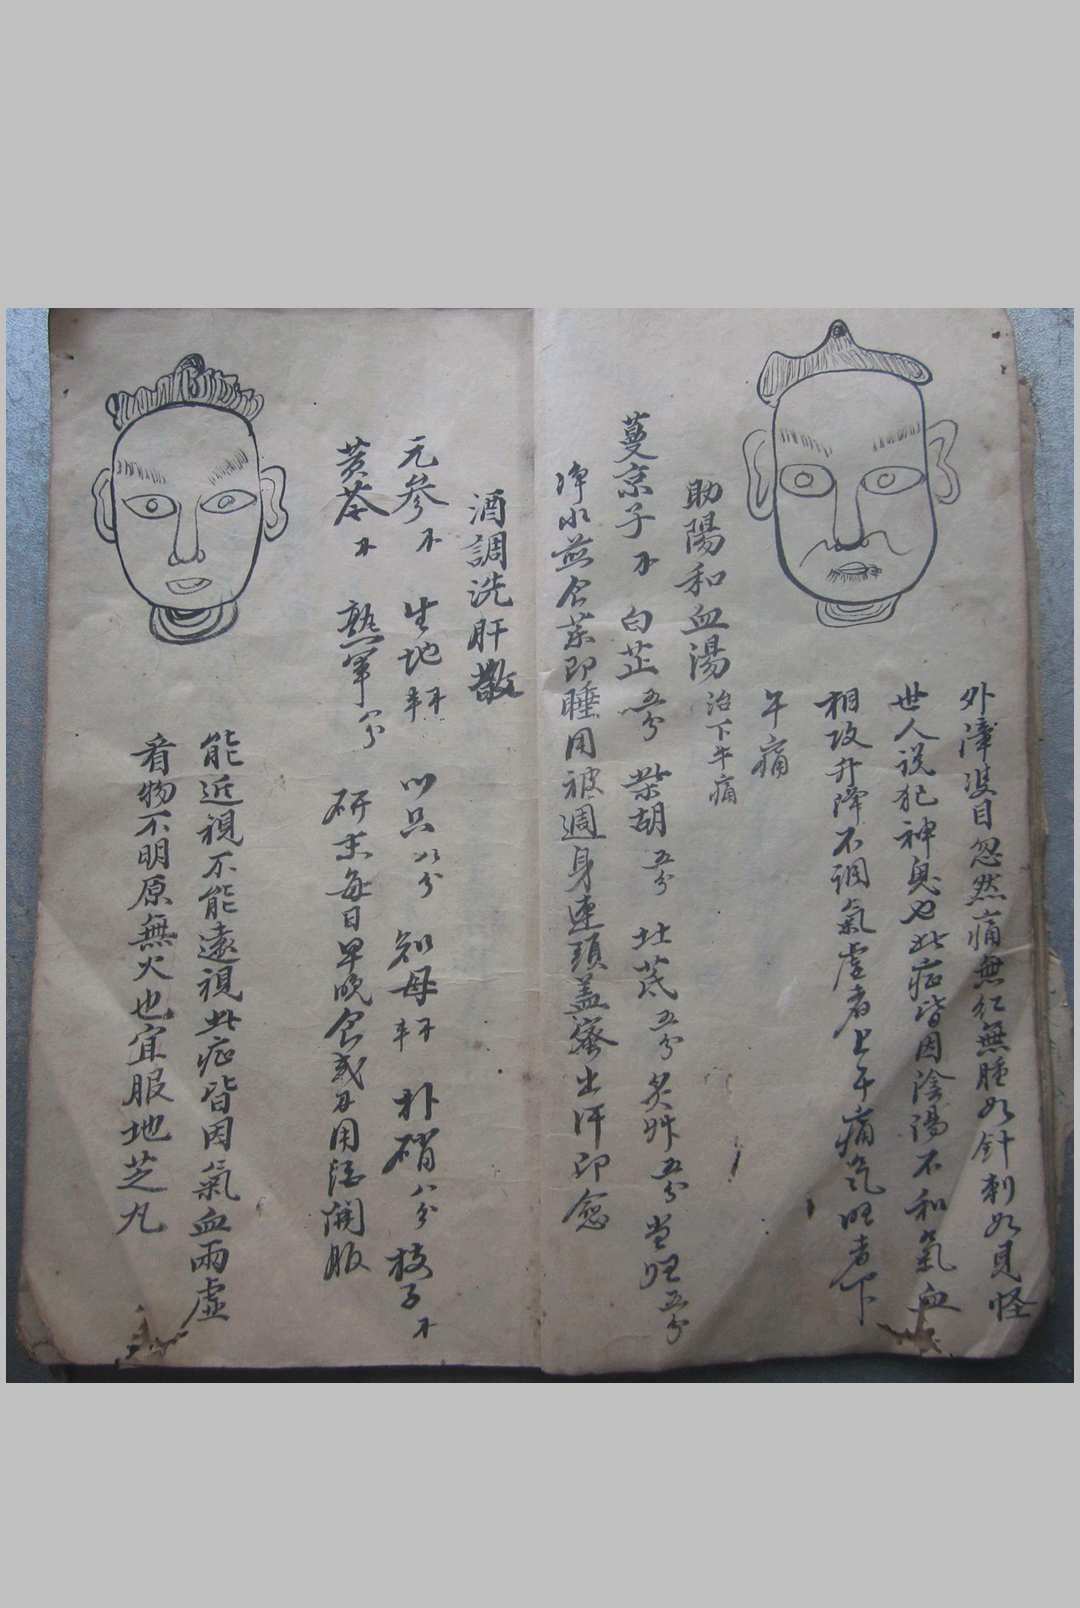 外瘴雙目忽然痛無紅無腫如針刺如見怪
世人說犯神鬼也此症皆因陰陽不和氣血
相攻升降不調氣虛者上午痛气旺者下
午痛
助陽和血湯 治下午痛
蔓京子 白芷 五分 柴胡 五分 五分 炙 五分 五分
淨水煎食葯即睡用被週身連頭盖密出汗即愈
酒調洗肝散
元參 生地 八分 知母 朴硝 八分 枝子
黄芩 熟軍 研末每日早晚食 用 開服
能近視不能遠視此症皆因氣血兩虛
看物不明原無火也宜服地芝丸